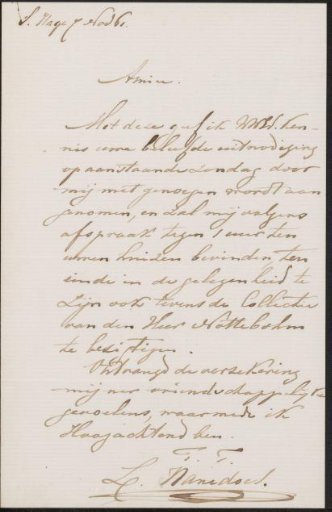 S. Hage 7 Nov 61.
Amice.
Met deze geef ik WEd. ken-
nis uwe beleefde uitnoodiging
op aanstaande Zondag door
mij met genoegen wordt aan
genomen, en zal mij volgens
afspraak tegen 1 uur ten
uwen huizen bevinden ten
einde in de gelegenheid te
Zijn ook tevens de Collectie
van den Heer Nottebohm
te bezigtigen.
Ontvangd de verzekering
mijner vriendschappelijke
gevoelens, waarmede ik
Hoogachtend ben.
T. T.
L.